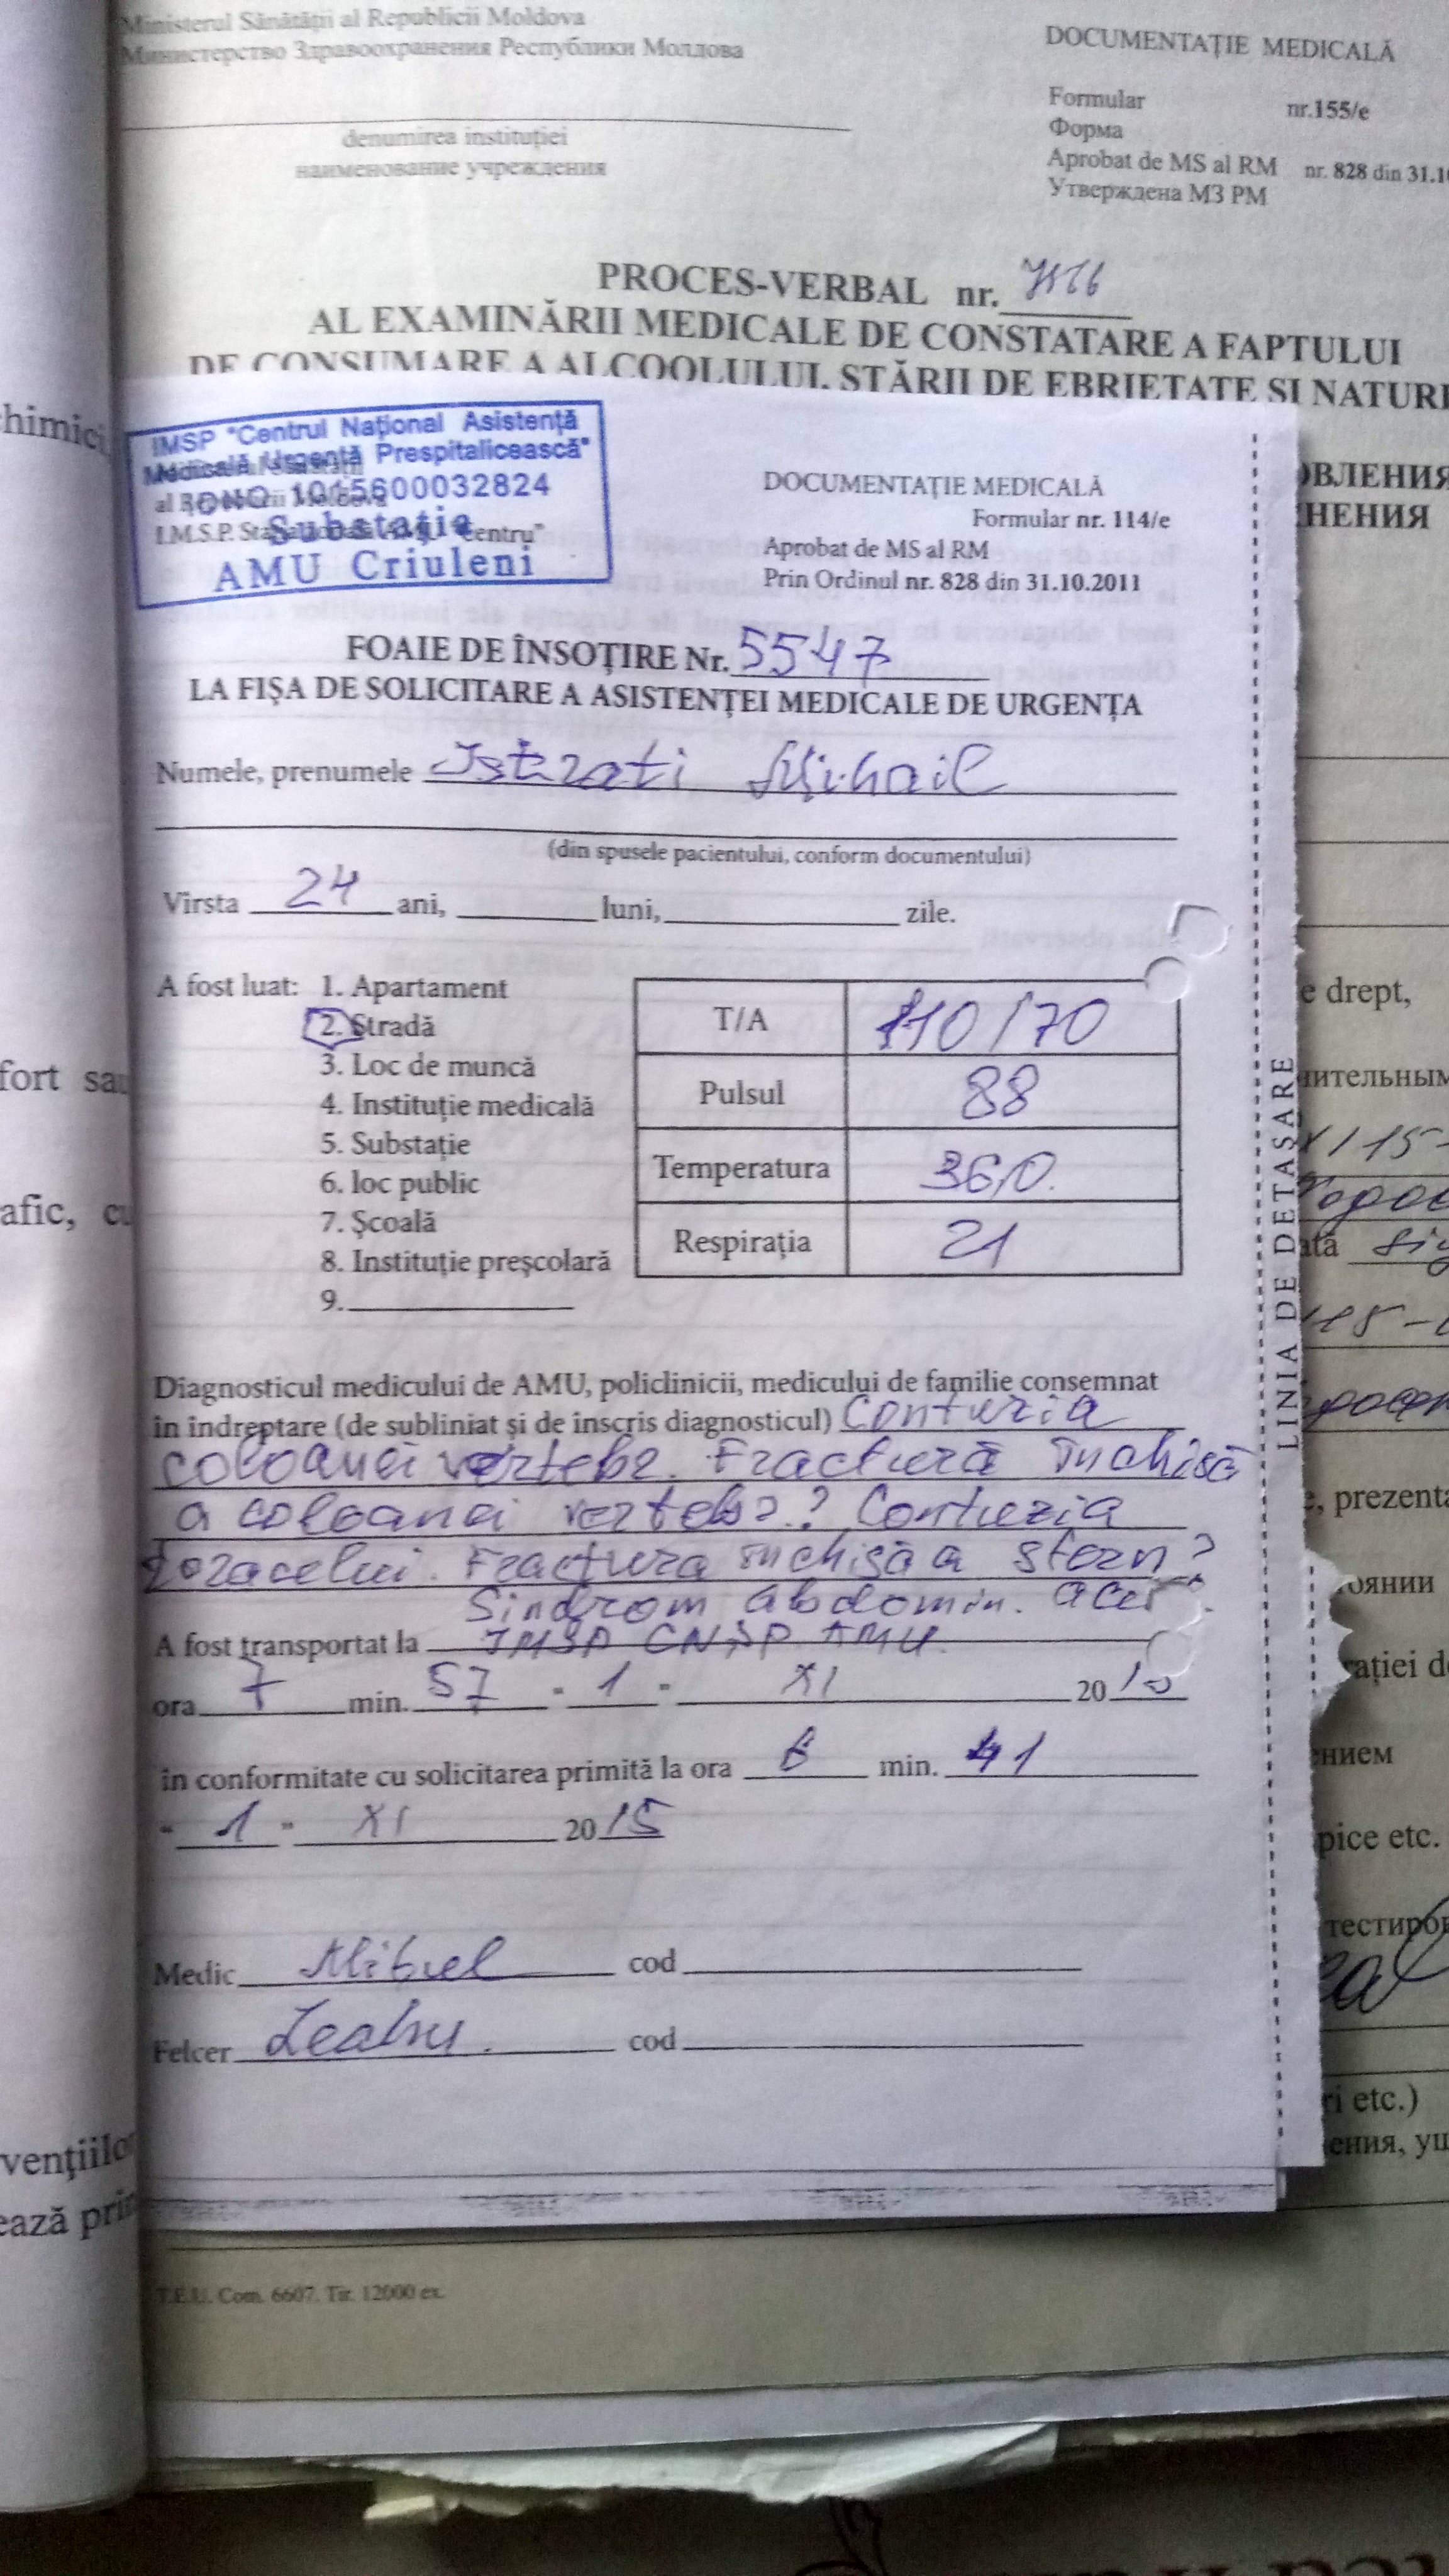 Ministerul Sănătății al Republicii Moldova
Министерство Здравоохранения Республики Молдова
denumirea instituției
наименование учреждения
DOCUMENTAȚIE MEDICALĂ
Formular nr.155/e
Форма
Aprobat de MS al RM nr. 828 din 31.1
Утверждена МЗ РМ
PROCES-VERBAL nr.
AL EXAMINĂRII MEDICALE DE CONSTATARE A FAPTULUI
DE CONSUMARE A ALCOOLULUI, STĂRII DE EBRIETATE ȘI NATURI
IMSP "Centrul Național Asistență
Medicală Urgență Prespitalicească"
IDNO 1015600032824
Substație
AMU Criuleni
DOCUMENTAȚIE MEDICALĂ
Formular nr. 114/e
Aprobat de MS al RM
Prin Ordinul nr. 828 din 31.10.2011
FOAIE DE ÎNSOȚIRE Nr. 5547
LA FIȘA DE SOLICITARE A ASISTENȚEI MEDICALE DE URGENȚA
Numele, prenumele Istrati Mihail
(din spusele pacientului, conform documentului)
Vîrsta 24 ani, luni, zile.
A fost luat: 1. Apartament
2. Stradă
3. Loc de muncă
4. Instituție medicală
5. Substație
6. loc public
7. Școală
8. Instituție preșcolară
9.
T/A 110/70
Pulsul 88
Temperatura 36,0.
Respirația 21
Diagnosticul medicului de AMU, policlinicii, medicului de familie consemnat
în îndreptare (de subliniat și de înscris diagnosticul) Contuzia
coloanei vertebr. Fractură închisă
a coloanei vertebr.? Contuzia
toracelui. Fractura închisă a stern?
Sindrom abdomin. acut
A fost transportat la IMSP CNȘP AMU
ora 7 min. 57 " 1 " XI 20
în conformitate cu solicitarea primită la ora 6 min. 41
" 1 " XI 2015
Medic cod
Felcer cod
LINIA DE DETAȘARE
T.E.U. Com. 6607. Tir. 12000 ex.
ОВЛЕНИЯ
НЕНИЯ
e drept,
нительным
, prezenta
оянии
rației d
нием
pice etc.
тестиров
ri etc.)
ения, уш
himici,
fort sau
afic, cu
vențiilo
ează prin